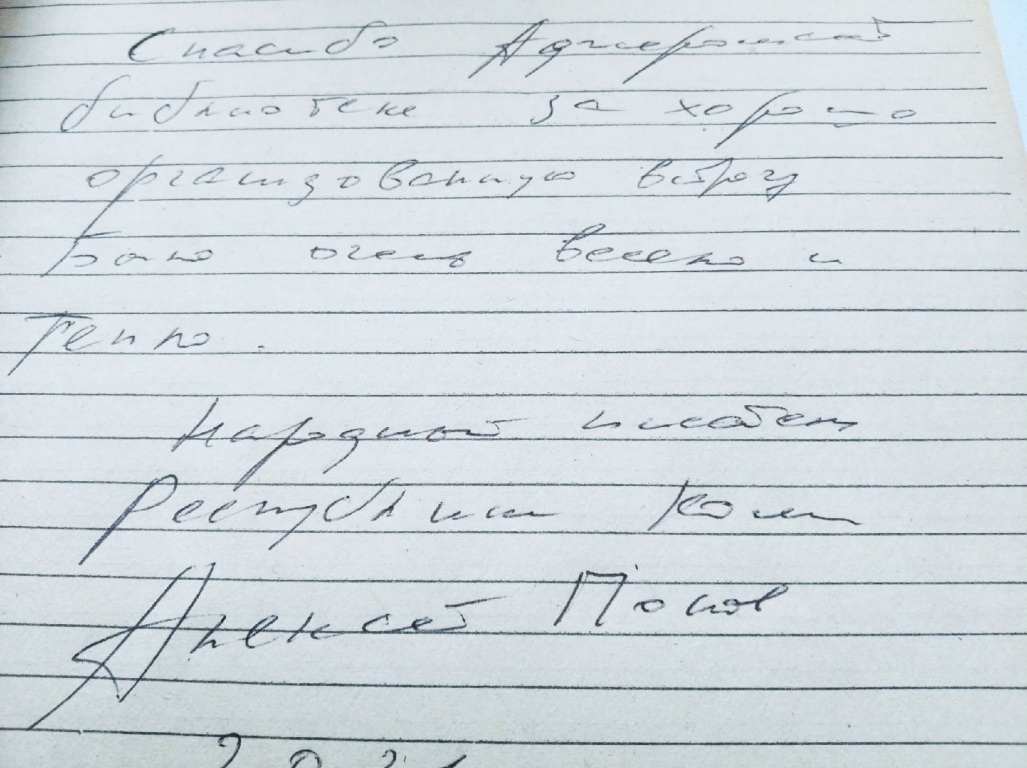 Спасибо Аджеромской
библиотеке за хорошо
организованную встречу
Было очень весело и
тепло.
Народный писатель
Республики Коми
Алексей Попов